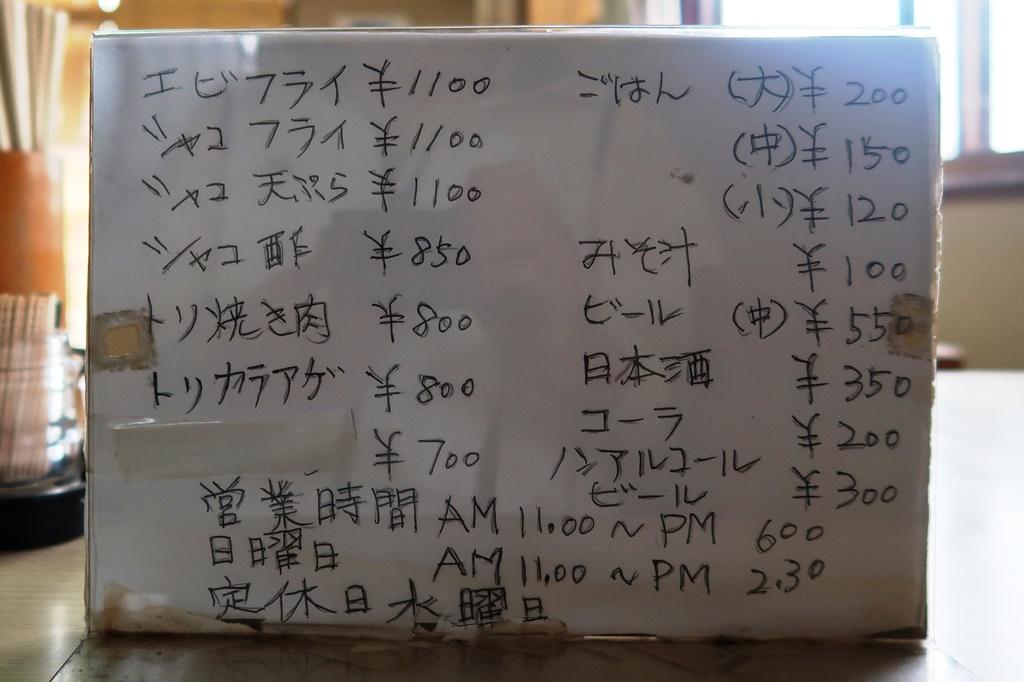 エビフライ ¥1100
シャコフライ ¥1100
シャコ天ぷら ¥1100
シャコ酢 ¥850
トリ焼き肉 ¥800
トリカラアゲ ¥800
¥700
ごはん (大)¥200
(中)¥150
(小)¥120
みそ汁 ¥100
ビール (中)¥550
日本酒 ¥350
コーラ ¥200
ノンアルコール
ビール ¥300
営業時間 AM 11.00 ~ PM 600
日曜日 AM 11.00 ~ PM 2.30
定休日 水曜日